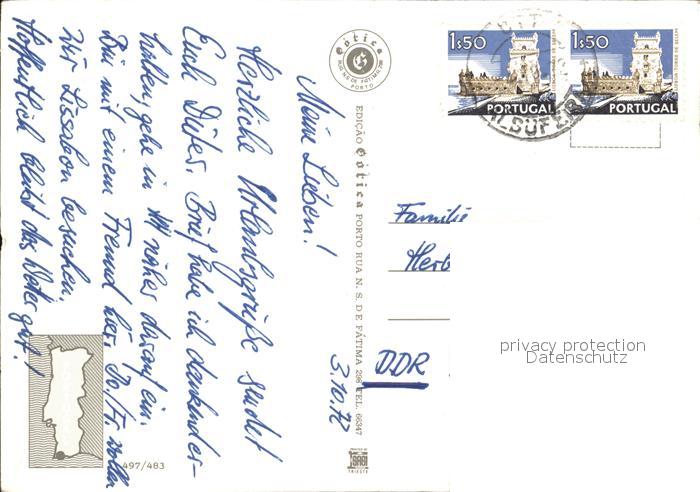 Meine Lieben!
Herzliche Urlaubsgrüße sendet
Euch Dieter. Brief habe ich dankender-
halten, gehe in näher darauf ein.
Bin mit einem Freund hier. Do./Fr. wollen
wir Lissabon besuchen.
Hoffentlich bleibt das Wetter gut!
3.10.72
Gótica
RUA N.S. DE FÁTIMA 298
PORTO
EDIÇÃO Gótica PORTO RUA N. S. DE FÁTIMA 298 TEL. 66347
PRINTED BY
TRIESTE
497/483
1$50
PORTUGAL
1$50
PORTUGAL
Familie
Herb
DDR
privacy protection
Datenschutz